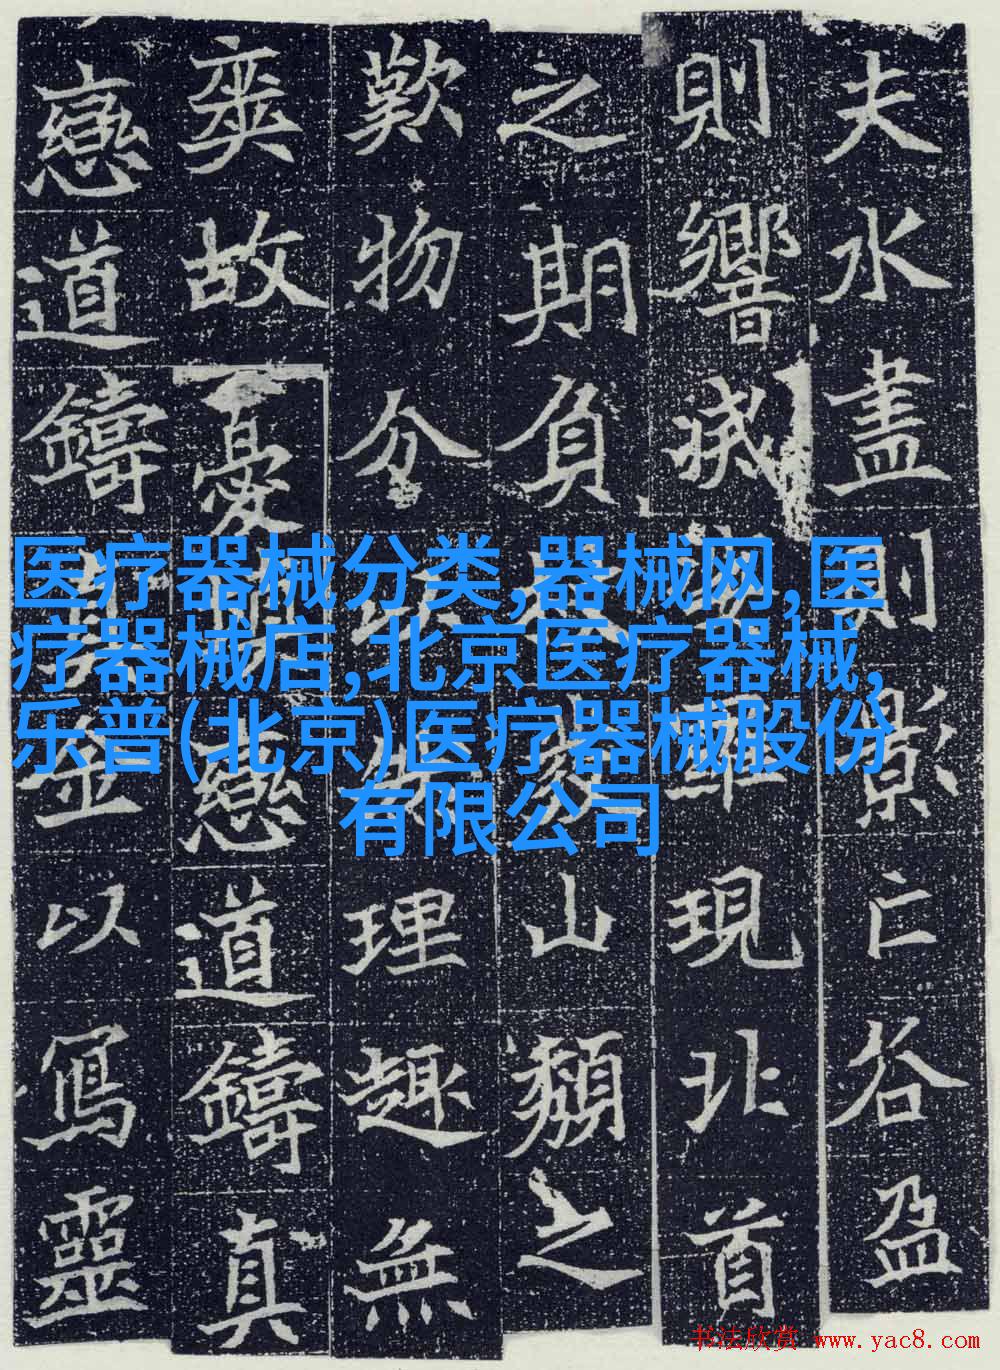 夫水盡則影亡谷盈
則響現北首
之期負山頹之
歎物分理趣無
爽故憂戀道鑄真
戀道鑄金以寫靈
医疗器械分类,器械网,医
疗器械店,北京医疗器械,
乐普(北京)医疗器械股份
有限公司
书法欣赏 www.yac8.com